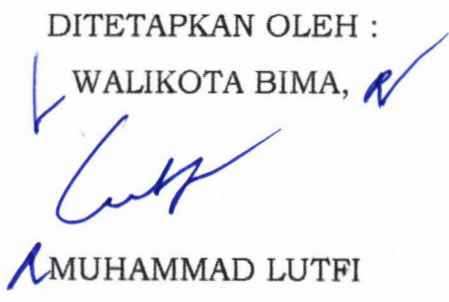 DITETAPKAN OLEH :
WALIKOTA BIMA,
MUHAMMAD LUTFI